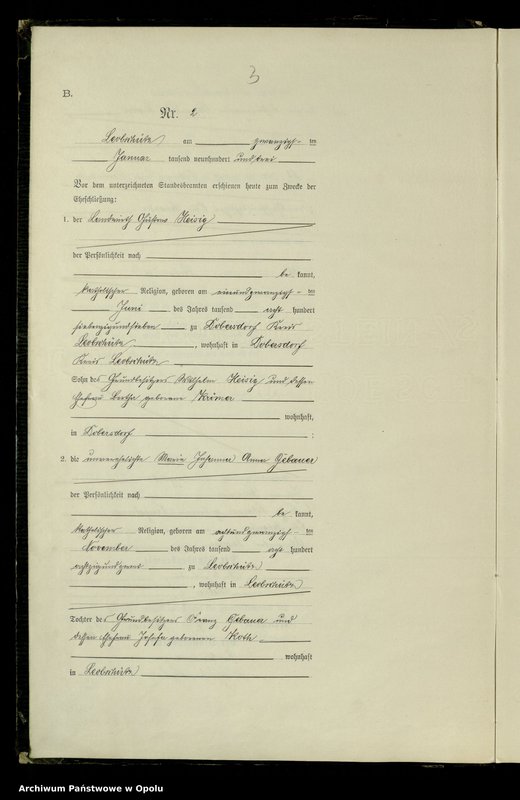 3
B.
Nr. 2
Leobschütz am zwanzigsten
Januar tausend neunhundert und drei
Vor dem unterzeichneten Standesbeamten erschienen heute zum Zwecke der
Eheschließung:
1. der Landwirth Gustav Heisig
der Persönlichkeit nach
be kannt,
katholischer Religion, geboren am einundzwanzigsten
Juni des Jahres tausend acht hundert
siebenzigundsieben zu Dobersdorf Kreis
Leobschütz, wohnhaft in Dobersdorf
Kreis Leobschütz
Sohn des Grundbesitzers Wilhelm Heisig und dessen
Ehefrau Bertha geborene Krömer
wohnhaft,
in Dobersdorf :
2. die unverehelichte Maria Johanna Anna Gebauer
der Persönlichkeit nach
be kannt,
katholischer Religion, geboren am achtundzwanzigsten
November des Jahres tausend acht hundert
achtzigundzwei, zu Leobschütz
, wohnhaft in Leobschütz
Tochter des Grundbesitzers Franz Gebauer und
dessen Ehefrau Josefa geborenen Kothe
wohnhaft
in Leobschütz
Archiwum Państwowe w Opolu